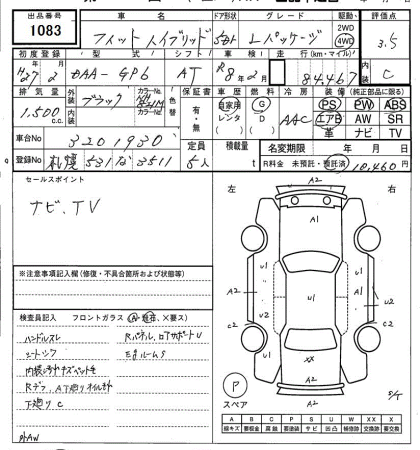 出品番号 車名 ドア形状 グレード 駆動 評価点
1083 フィットハイブリッド 5 Lパッケージ 2WD 4WD 3.5
初度登録 型式 シフト 車検 走行(km・マイル) 内装
H27 2 DAA-GP6 AT R8年2月 84,467 C
排気量 外装 カラーNo. 色替 保証書 車歴 燃料 冷房 装備(純正部品に限る)
1,500 c.c. 内装 カラーNo. 有・無 自家用 レンタ G D AAC PS PW ABS
エアB AW SR
革 ナビ TV
車台No 3201930 定員 積載量 名変期限 年 月 日
登録No 札幌 531 な 3511 5人 t R料金 未預託・預託済 10,460円
セールスポイント
ナビ、TV
※注意事項記入欄(修復・不具合箇所および状態等)
検査員記入欄 フロントガラス(A・飛石、×要ス)
ハンドルスレ Rパネル、ロアサポートU
シートシワ Egルーム S
下廻りC
外AW
左 右
A2
A1
U1 U1
A2 U1 U2
C2 C2
XX
A2 A1
A2
P
スペア
A B C P S U W X XX
線キズ 要板金 腐蝕 要塗装 サビ 凹凸 補修跡 交換跡 要交換